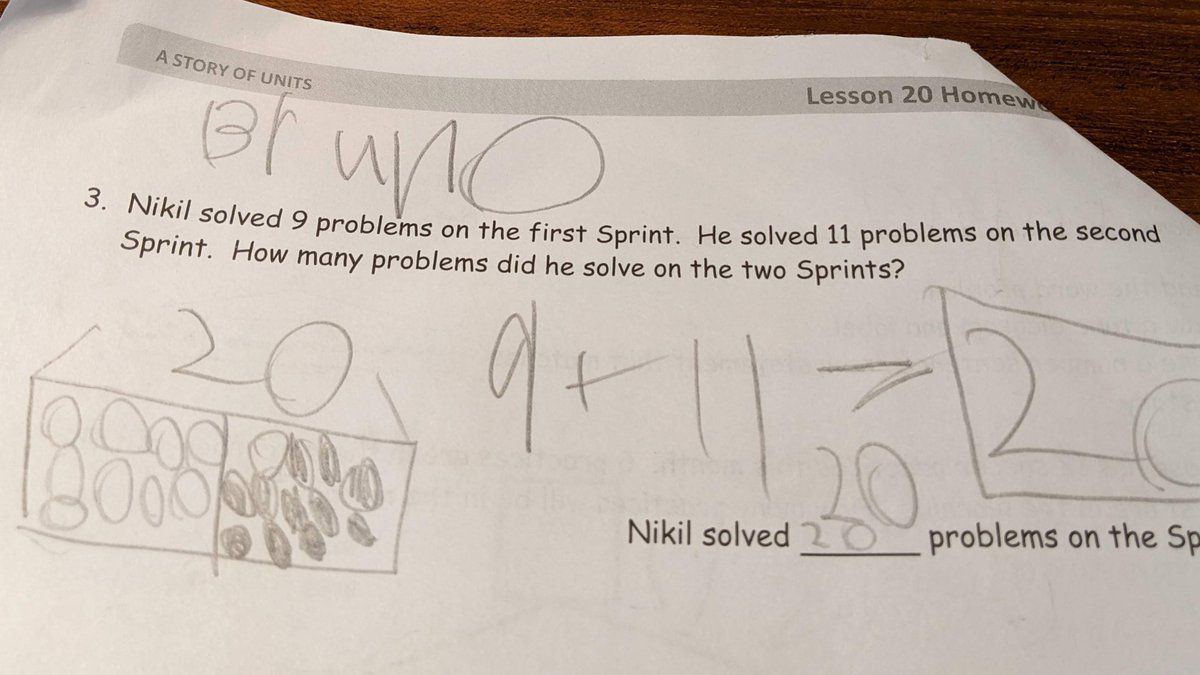 A STORY OF UNITS
Lesson 20 Homew
Bruno
3. Nikil solved 9 problems on the first Sprint. He solved 11 problems on the second
Sprint. How many problems did he solve on the two Sprints?
20
9 + 11 = 20
20
Nikil solved 20 problems on the Sp